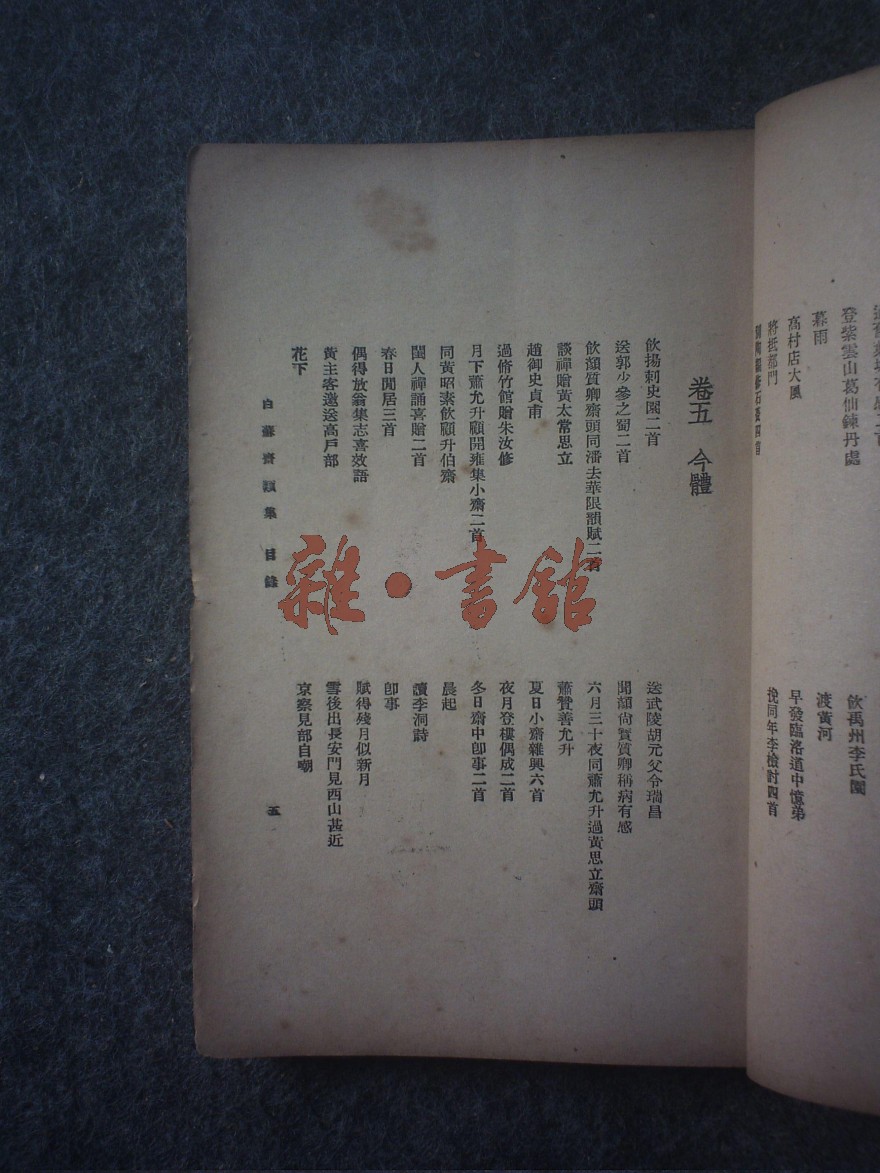 登紫雲山葛仙鍊丹處
暮雨
高村店大風
將抵都門
飲禹州李氏園
渡黃河
早發臨洛道中憶弟
挽同年李檢討四首
卷五 今體
飲揚刺史園二首
送郭少參之蜀二首
飲顏質卿齋頭同潘去華限韻賦二首
談禪贈黃太常思立
趙御史貞甫
過脩竹館贈朱汝修
月下蕭允升顧開雍集小齋二首
同黃昭素飲顧升伯齋
閨人禪誦喜贈二首
春日閒居三首
偶得放翁集志喜效語
黃主客邀送高戶部
花下
送武陵胡元父令瑞昌
聞顏尚寶質卿稱病有感
六月三十夜同蕭允升過黃思立齋頭
蕭贊善允升
夏日小齋雜興六首
夜月登樓偶成二首
冬日齋中卽事二首
晨起
讀李洞詩
卽事
賦得殘月似新月
雪後出長安門見西山甚近
京察見部自嘲
白蘇齋類集 目錄
五
雜·書館